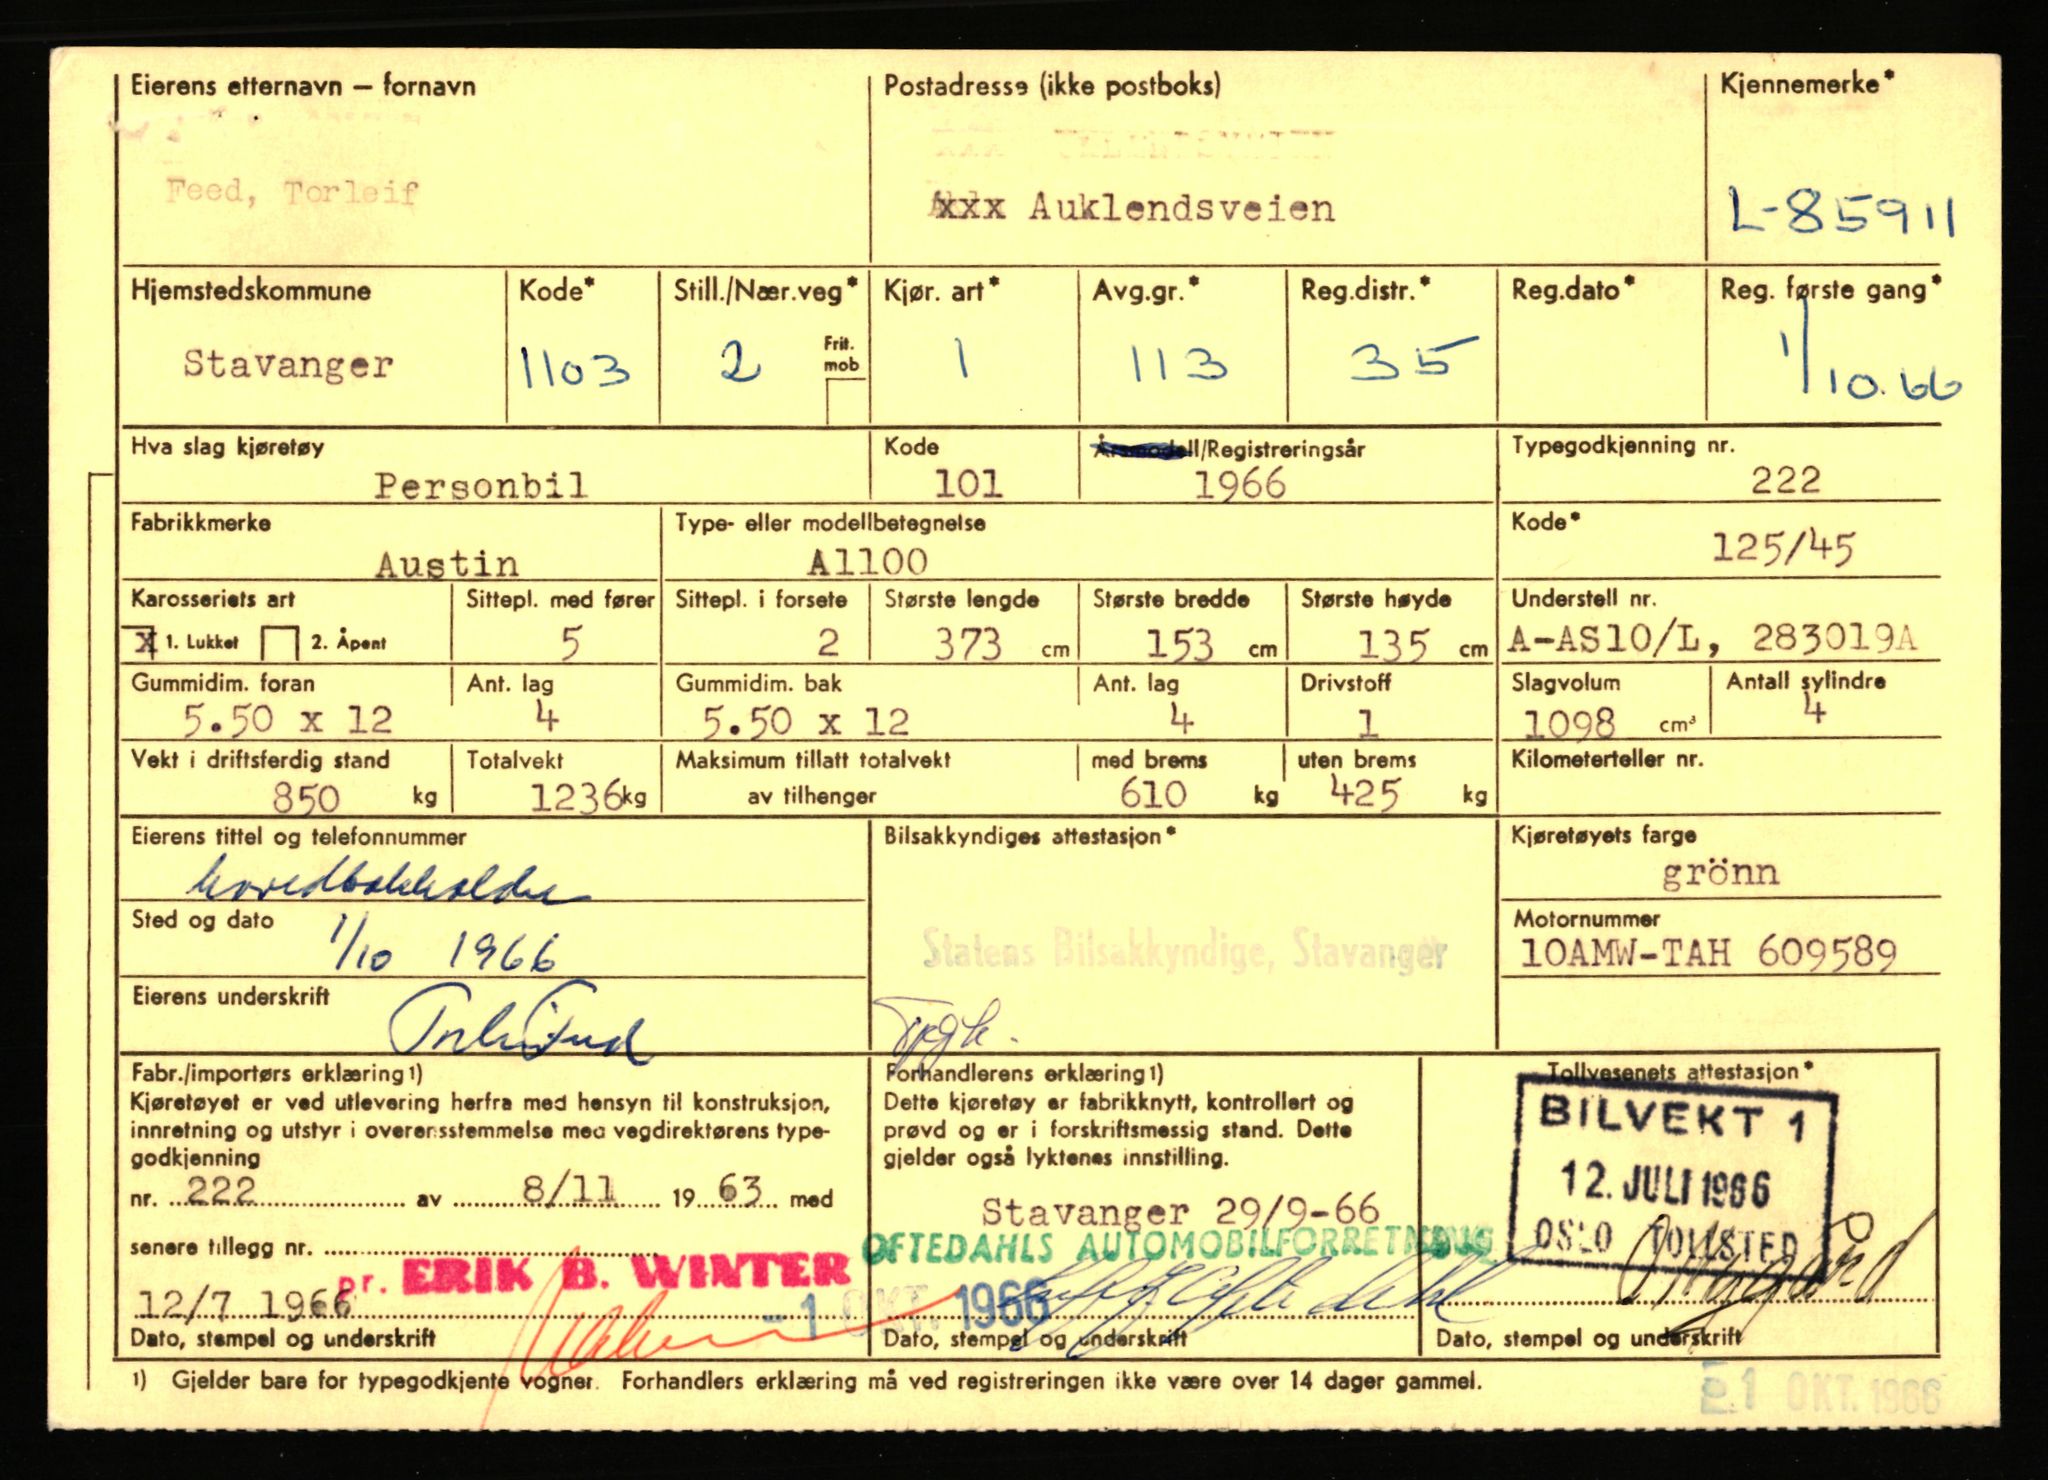 Eierens etternavn — fornavn
Postadresse (ikke postboks)
Kjennemerke*
Feed, Torleif
xxx Auklendsveien
L-85911
Hjemstedskommune Kode* Still./Nær.veg* Kjør. art* Avg.gr.* Reg.distr.* Reg.dato* Reg. første gang*
Frit. mob
Stavanger 1103 2 1 113 35 1/10.66
Hva slag kjøretøy Kode /Registreringsår Typegodkjenning nr.
Personbil 101 1966 222
Fabrikkmerke Type- eller modellbetegnelse Kode*
Austin A1100 125/45
Karosseriets art Sittepl. med fører Sittepl. i forsete Største lengde Største bredde Største høyde Understell nr.
x 1. Lukket 2. Åpent 5 2 373 cm 153 cm 135 cm A-AS10/L, 283019A
Gummidim. foran Ant. lag Gummidim. bak Ant. lag Drivstoff Slagvolum Antall sylindre
5.50 x 12 4 5.50 x 12 4 1 1098 cm³ 4
Vekt i driftsferdig stand Totalvekt Maksimum tillatt totalvekt med brems uten brems Kilometerteller nr.
850 kg 1236kg av tilhenger 610 kg 425 kg
Eierens tittel og telefonnummer Bilsakkyndiges attestasjon* Kjøretøyets farge
grönn
Sted og dato
1/10 1966
Statens Bilsakkyndige, Stavanger
Motornummer
10AMW-TAH 609589
Eierens underskrift
Fabr./importørs erklæring1)
Kjøretøyet er ved utlevering herfra med hensyn til konstruksjon,
innretning og utstyr i overensstemmelse med vegdirektørens type-
godkjenning
nr. 222 av 8/11 1963 med
senere tillegg nr.
pr. ERIK B. WINTER
12/7 1966
Dato, stempel og underskrift
Forhandlerens erklæring1)
Dette kjøretøy er fabrikknytt, kontrollert og
prøvd og er i forskriftsmessig stand. Dette
gjelder også lyktenes innstilling.
Stavanger 29/9-66
OFTEDAHLS AUTOMOBILFORRETNING
-1 OKT. 1966
Dato, stempel og underskrift
Tollvesenets attestasjon*
BILVEKT 1
12. JULI 1966
OSLO TOLLSTED
Dato, stempel og underskrift
1) Gjelder bare for typegodkjente vogner. Forhandlers erklæring må ved registreringen ikke være over 14 dager gammel.
1 OKT. 1966